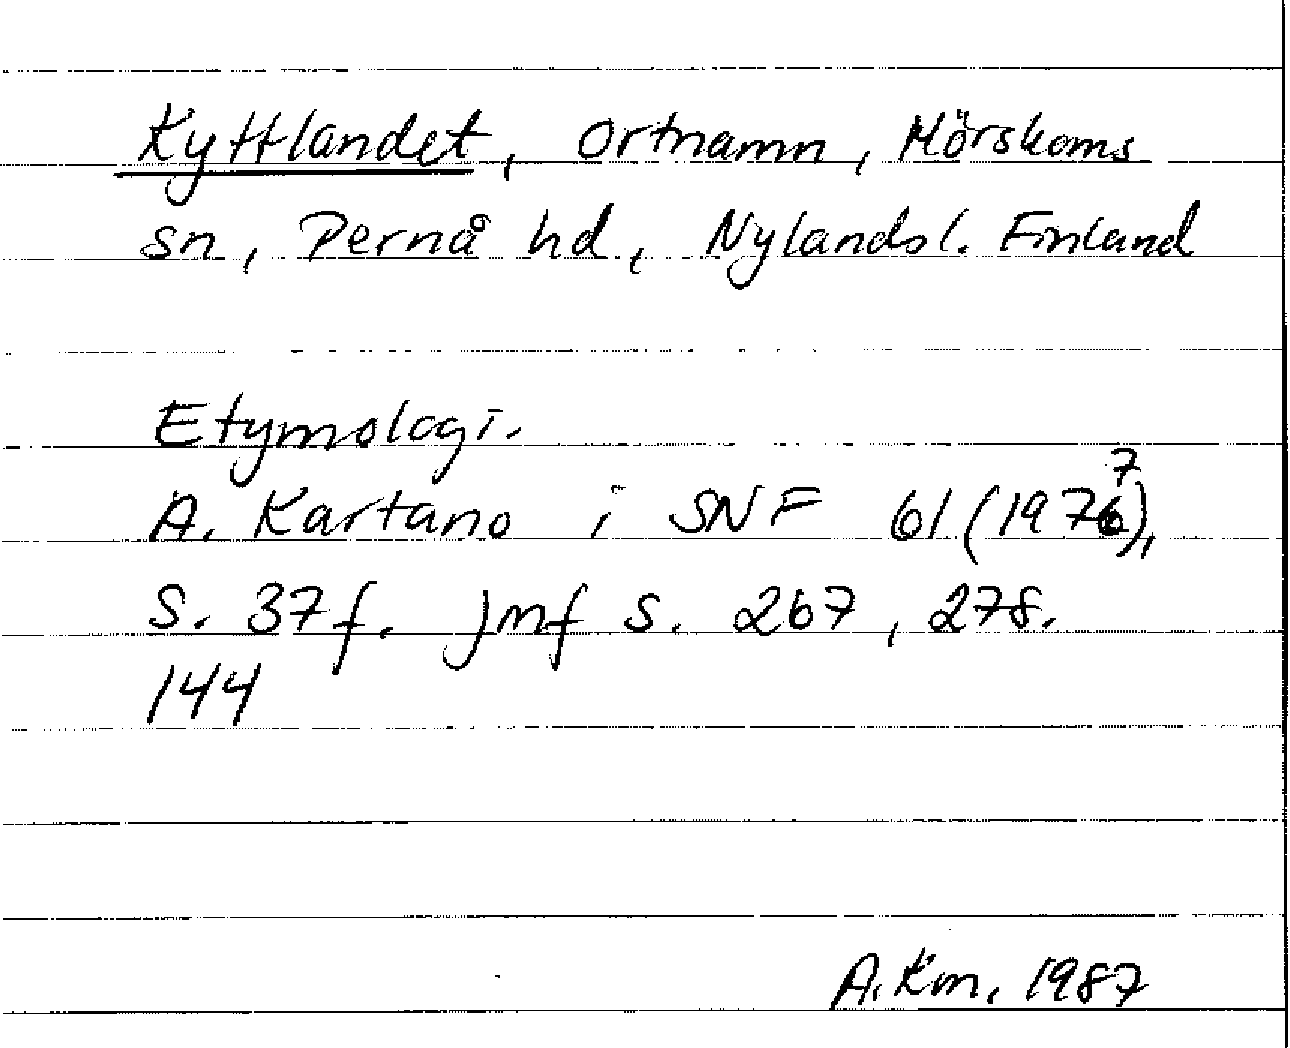 Kyttlandet, Ortnamn, Mörskoms
sn, Pernå hd, Nylandsl. Finland
Etymologi.
A. Kartano i SNF 61 (1977),
s. 37f. jmf s. 267, 278.
144
A. Km. 1987